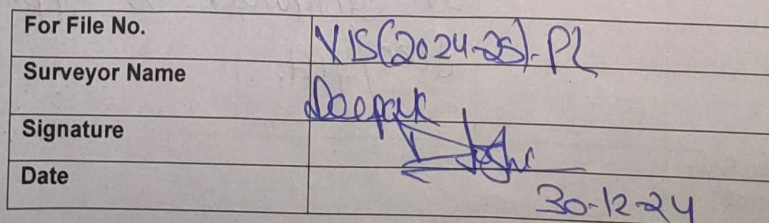 For File No. VIS(2024-25)-PL
Surveyor Name Deepak
Signature Joshi
Date 30-12-24